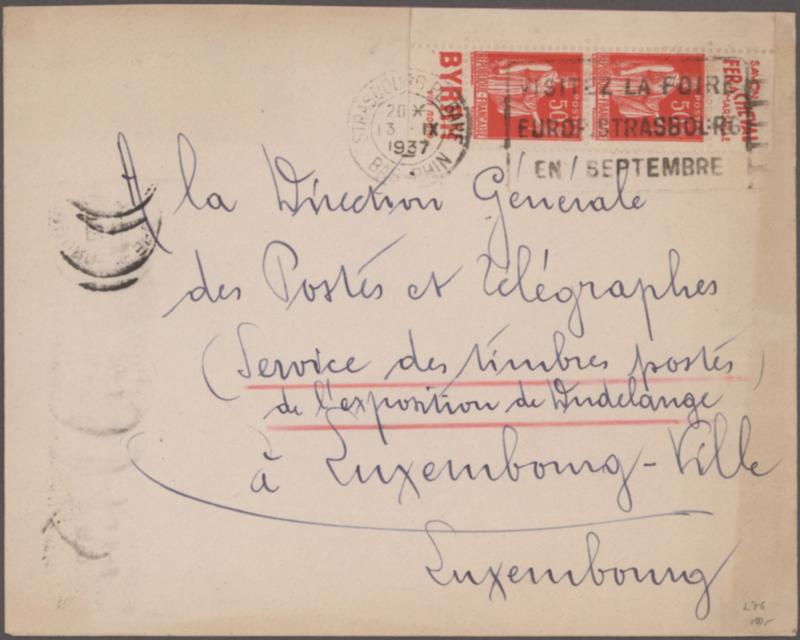 BYRRH
REPUBLIQUE FRANÇAISE
POSTES
50c
REPUBLIQUE FRANÇAISE
POSTES
50c
FER A CHEVAL
STRASBOURG R.P. GARE
20 X
13 IX
1937
BAS-RHIN
VISITEZ LA FOIRE
EUROP STRASBOURG
EN SEPTEMBRE
A la Direction Générale
des Postes et Télégraphes
(Service des timbres postes)
de l'exposition de Dudelange
à Luxembourg-Ville
Luxembourg